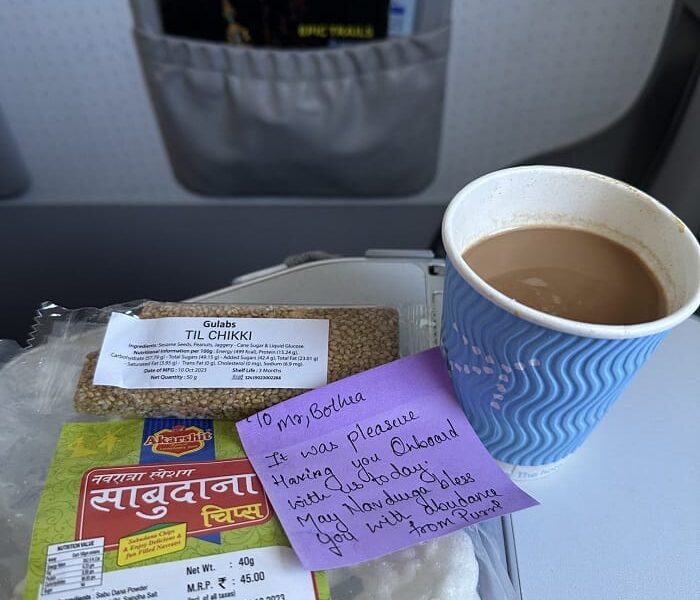 EPIC TRAILS
Gulabs
TIL CHIKKI
Ingredients: Sesame Seeds, Peanuts, Jaggery - Cane Sugar & Liquid Glucose.
Nutritional Information per 100g: Energy (499 Kcal), Protein (13.24 g),
Carbohydrate (57.79 g) - Total Sugars (49.15 g) - Added Sugars (42.4 g), Total Fat (23.91 g)
Saturated Fat (3.95 g) - Trans Fat (0 g), Cholesterol (0 mg), Sodium (6.9 mg).
Date of MFG: 10 Oct 2023 Shelf Life: 3 Months
Net Quantity: 50 g fssai
To Mr, Bothra
It was pleasure
Having you Onboard
with us today.
May Navdurga bless
you with abundance
from
Akarshit
नवरात्रा स्पेशल
साबुदाना
चिप्स
Sabudana Chips
& Enjoy Delicious &
fun Filled Navratri
NUTRITION VALUE
Net Wt. : 40g
M.R.P. ₹ : 45.00
(Incl. of all taxes)
Ingredients : Sabu Dana Powder
2023